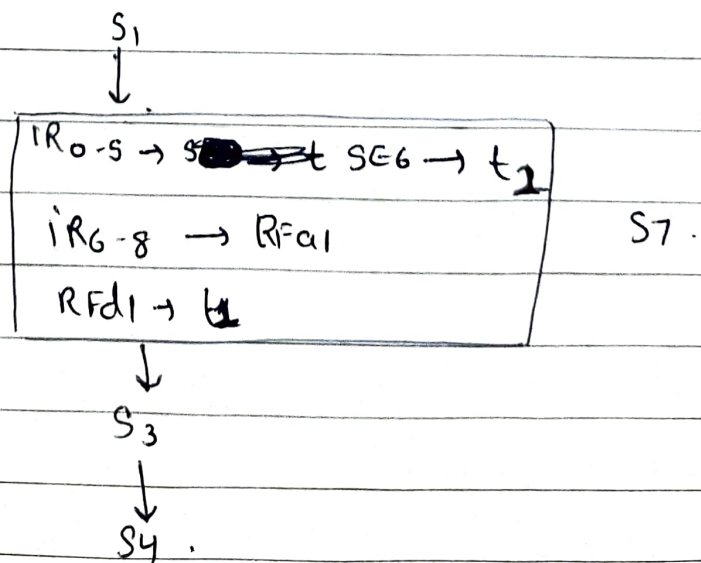 S1
↓
IR0-5 → SE6 → t2
iR6-8 → RFa1
S7.
RFd1 → t1
↓
S3
↓
S4.